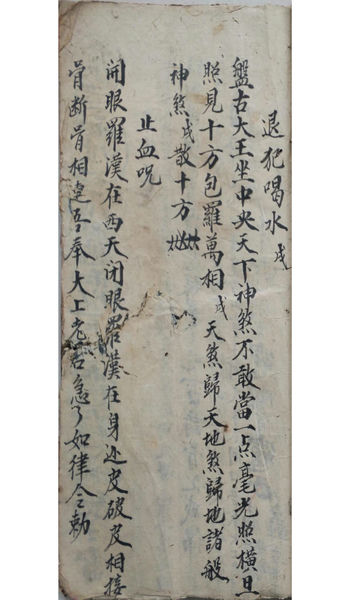 退犯喝水戌
盤古大王坐中央天下神煞不敢當一点毫光照横旦
照見十方包羅萬相戌天煞歸天地煞歸地諸般
神煞戌散十方
止血咒
開眼羅漢在西天闭眼羅漢在身边皮破皮相接
骨断骨相連吾奉大上老君急了如律令勅